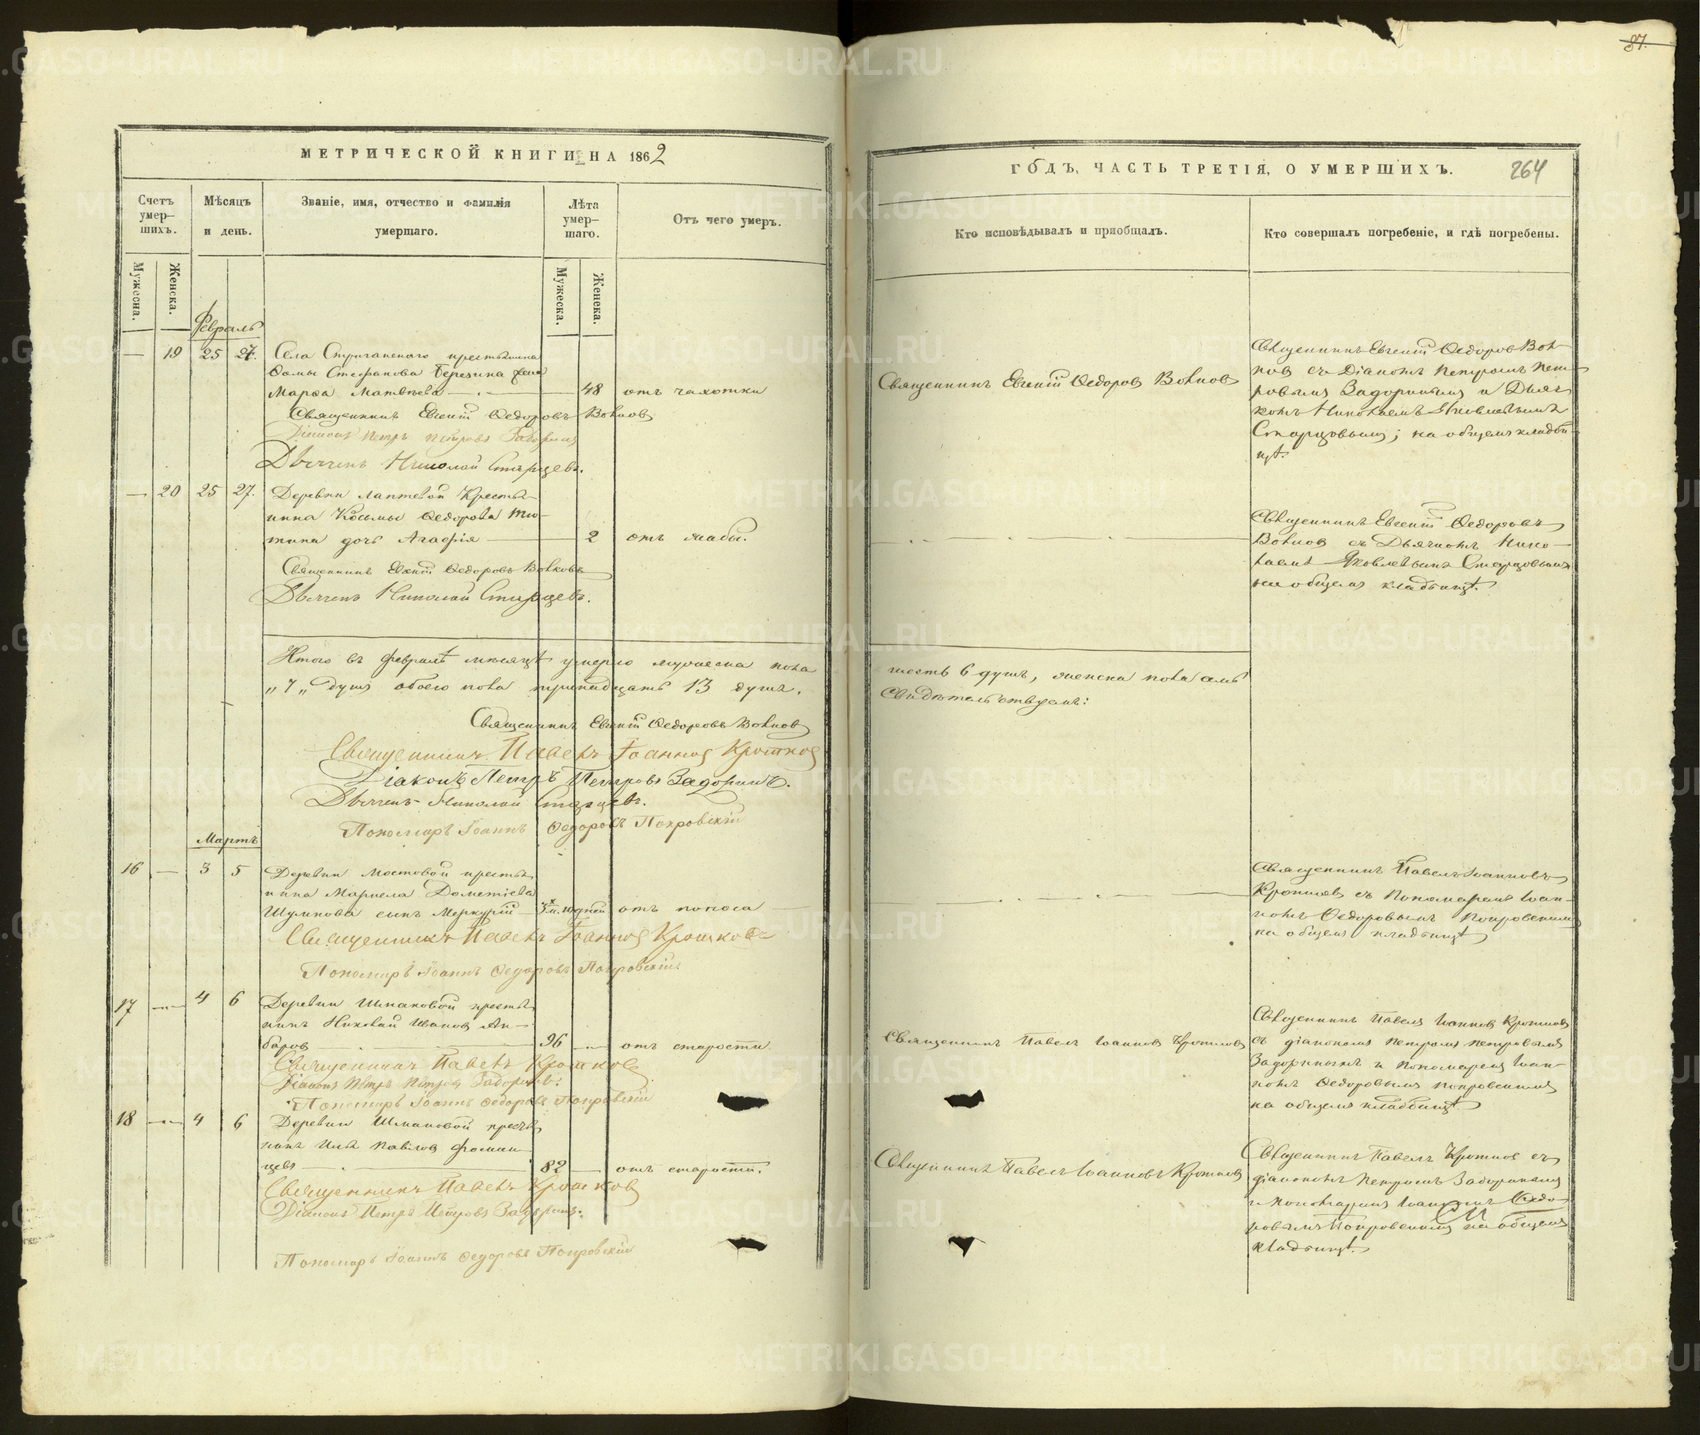 87.
МЕТРИЧЕСКОЙ КНИГИ НА 1862
Счетъ умер-
шихъ.
Мѣсяцъ
и день.
Званіе, имя, отчество и фамилія
умершаго.
Лѣта
умер-
шаго.
Отъ чего умеръ.
Мужеска.
Женска.
Мужеска.
Женска.
Февраль
— 19 25 27. Села Стриганскаго крестьянина
Ѳомы Стефанова Березина жена
Марѳа Матвѣева — 48 отъ чахотки
Священникъ Евгеній Ѳедоровъ Волковъ
Діаконъ Петръ Петровъ Задоринъ
Дьячекъ Николай Старцевъ.
— 20 25 27. Деревни Лаптевой Крестья-
нина Косьмы Ѳедорова
дочь Агафія — 2 отъ жабы.
Священникъ Евгеній Ѳедоровъ Волковъ
Дьячекъ Николай Старцевъ.
Итого въ Февралѣ мѣсяцѣ умерло мужеска пола
„7„ душъ обоего пола тринадцать 13 душъ.
Священникъ Евгеній Ѳедоровъ Волковъ
Священникъ Павелъ Іоанновъ Кротковъ
Діаконъ Петръ Петровъ Задоринъ.
Дьячекъ Николай Старцевъ.
Пономарь Іоаннъ Ѳедоровъ Покровскій
Мартъ
16 — 3 5 Деревни Мостовой крестья-
нина Маркела Дометіева
Шумкова сынъ Меркурій отъ поноса
Священникъ Павелъ Іоанновъ Кротковъ
Пономарь Іоаннъ Ѳедоровъ Покровскій
17 — 4 6 Деревни Шмаковой кресть-
янинъ Николай Ивановъ Ам-
баровъ 96 — отъ старости
Священникъ Павелъ Кротковъ
Діаконъ Петръ Петровъ Задоринъ.
Пономарь Іоаннъ Ѳедоровъ Покровскій
18 — 4 6 Деревни Шмаковой кресть-
янинъ Илья Павловъ
82 — отъ старости.
Священникъ Павелъ Кротковъ
Діаконъ Петръ Петровъ Задоринъ.
Пономарь Іоаннъ Ѳедоровъ Покровскій
ГОДЪ, ЧАСТЬ ТРЕТІЯ, О УМЕРШИХЪ. 264
Кто исповѣдывалъ и пріобщалъ.
Кто совершалъ погребеніе, и гдѣ погребены.
Священникъ Евгеній Ѳедоровъ Волковъ
Священникъ Евгеній Ѳедоровъ Вол-
ковъ съ Діакономъ Петромъ Пет-
ровымъ Задоринымъ и Дьяч-
комъ Николаемъ Яковлевымъ
Старцовымъ; на общемъ кладби-
щѣ.
Священникъ Евгеній Ѳедоровъ
Волковъ съ Дьячкомъ Нико-
лаемъ Яковлевымъ Старцовымъ
на общемъ кладбищѣ.
шесть 6 душъ, женска пола семь
Свидѣтельствуемъ:
Священникъ Павелъ Іоанновъ
Кротковъ съ Пономаремъ Іоан-
номъ Ѳедоровымъ Покровскимъ
на общемъ кладбищѣ
Священникъ Павелъ Іоанновъ Кротковъ
Священникъ Павелъ Іоанновъ Кротковъ
съ діакономъ Петромъ Петровымъ
Задоринымъ и Пономаремъ Іоан-
номъ Ѳедоровымъ Покровскимъ
на общемъ кладбищѣ.
Священникъ Павелъ Іоанновъ Кротковъ
Священникъ Павелъ Кротковъ съ
діакономъ Петромъ Задоринымъ
и Пономаремъ Іоанномъ Ѳедо-
ровымъ Покровскимъ на общемъ
кладбищѣ.
METRIKI.GASO-URAL.RU